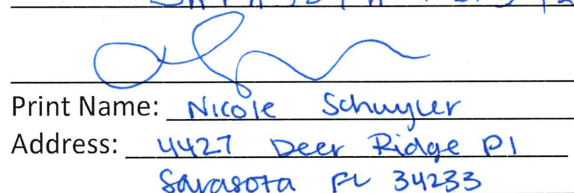 Print Name: Nicole Schuyler
Address: 4427 Deer Ridge Pl
Sarasota FL 34233